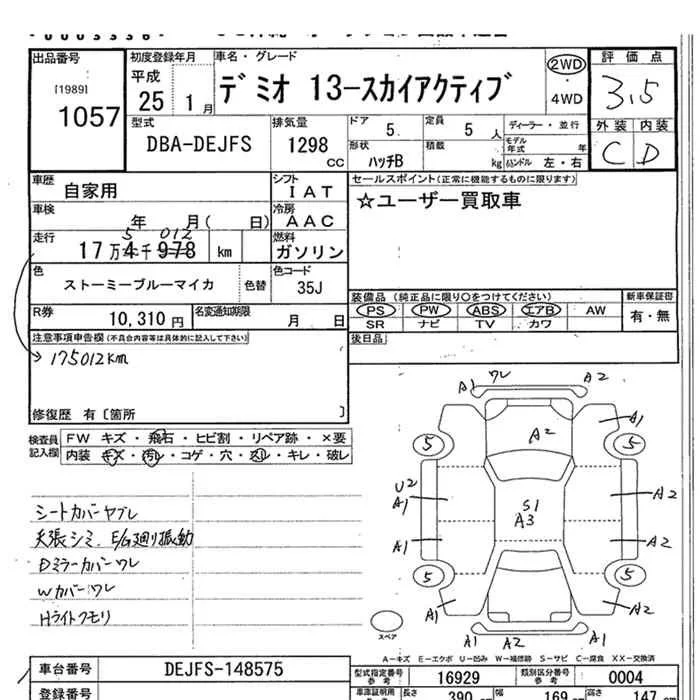 0003336
出品番号
[1989]
1057
初度登録年月
平成
25 1月
車名・グレード
デミオ 13-スカイアクティブ
2WD
・
4WD
評価点
3.5
外装 内装
C D
型式
DBA-DEJFS
排気量
1298
CC
ドア
5
定員
5 人
形状
ハッチB
積載
kg
ディーラー・並行
モデル年式 年
ハンドル 左・右
車歴
自家用
シフト
IAT
車検
年 月( 日)
冷房
AAC
走行
5 012
17万4千978 km
燃料
ガソリン
色
ストーミーブルーマイカ
色替
色コード
35J
R券
10,310円
名変通知期限
月 日
セールスポイント(正常に機能するものに限ります)
☆ユーザー買取車
装備品(純正品に限り○をつけてください)
PS PW ABS エアB AW
SR ナビ TV カワ
新車保証書
有・無
後日品
注意事項申告欄(不具合内容等は具体的に記入して下さい)
175012km
修復歴 有〔箇所 〕
検査員記入欄
FW キズ・飛石・ヒビ割・リペア跡・×要
内装 キズ・汚レ・コゲ・穴・スレ・キレ・破レ
シートカバーヤブレ
天張シミ E/G廻り振動
Dミラーカバーワレ
Wカバーワレ
Hライトクモリ
A1 ワレ A2
A2 A1
5 5
U2
A1
S1
A3
A2
A1 A2
5 5
A1 A2
スペア
A1 A2 A1
A-キズ E-エクボ U-凹み W-補修跡 S-サビ C-腐食 XX-交換済
車台番号
DEJFS-148575
登録番号
型式指定番号
参考
16929
類別区分番号
参考
0004
車庫証明用
参考
長さ
390
幅
169
高さ
147
cm